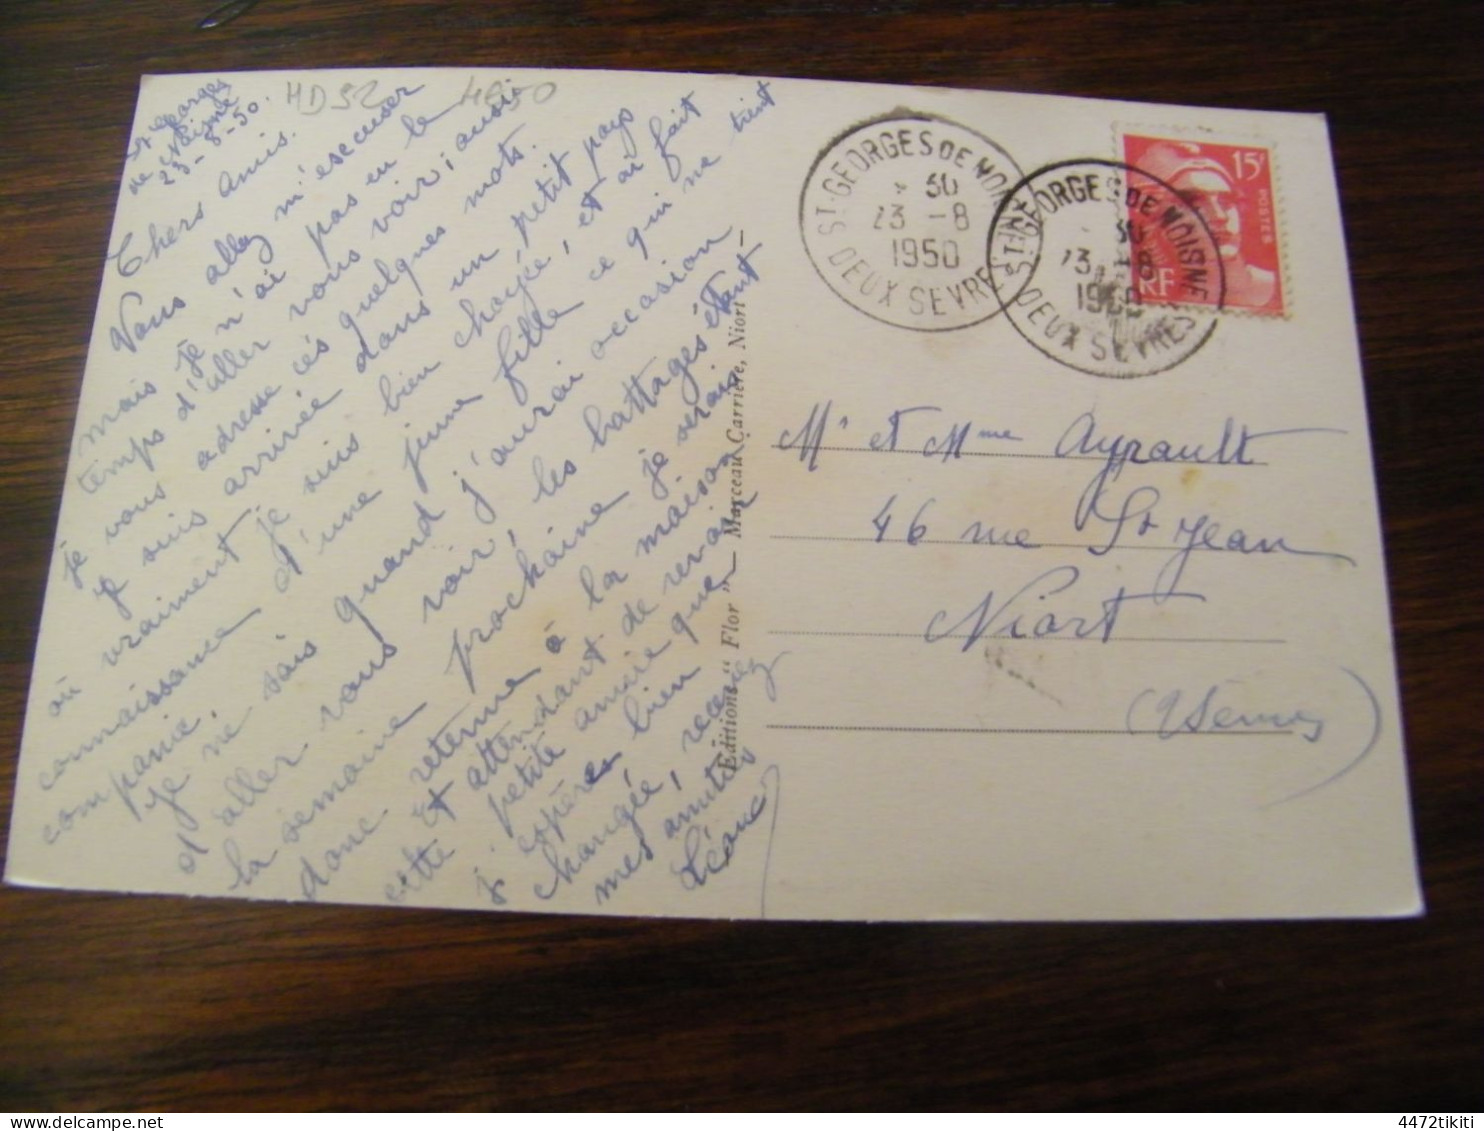 HD92
St Georges
de Noisné
23-8-50.
Chers amis.
Vous allez m'escuser
mais je n'ai pas eu le
temps d'aller vous voir, aussi
je vous adresse ces quelques mots.
je suis arrivée dans un petit pays
où vraiment je suis bien choyée, et ai fait
connaissance d'une jeune fille ce qui me tient
compagnie.
je ne sais quand j'aurai occasion
d'aller vous voir, les battages étant
la semaine prochaine je serais
donc retenue à la maison
Et attendant de revoir
cette petite amie que
j'espère bien
changée, recevez
mes amitiés
Léone
Editions " Flor " — Marceau Carrière, Niort —
ST-GEORGES DE NOISNE
30
23 -8
1950
DEUX SEVRES
ST-GEORGES DE NOISNE
30
23 -8
1950
DEUX SEVRES
15F
POSTES
RF
Mr et Mme Ayrault
46 rue St Jean
Niort
(2 Sèvres)
4472tikiti